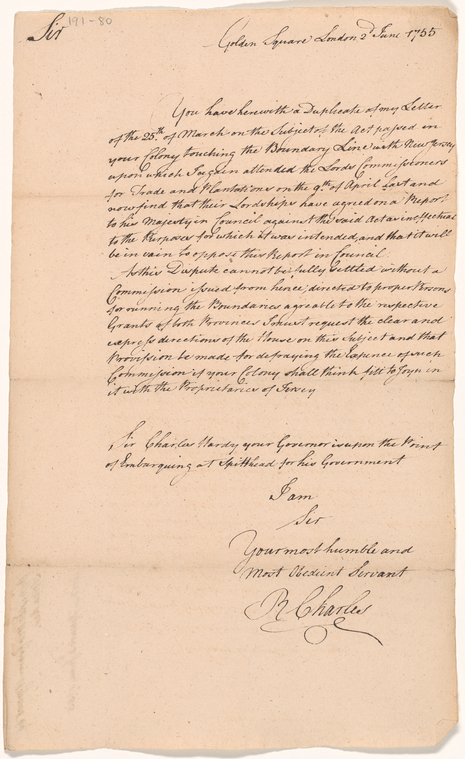 Sir
191-80
Golden Square London 2d June 1755
You have herewith a Duplicate of my Letter
of the 25th of March on the Subject of the Act passed in
your Colony touching the Boundary Line with New Jersey
upon which I again attended the Lords Commissioners
for Trade and Plantations on the 9th of April last and
now find that their Lordships have agreed on a Report
to his Majesty in Council against the said Act as ineffectual
to the Purposes for which it was intended, and that it will
be in vain to oppose this Report in Council.
As this Dispute cannot be fully settled without a
Commission issued from hence, directed to proper Persons
for running the Boundaries agreable to the respective
Grants of both Provinces I must request the clear and
express directions of the House on this Subject and that
Provision be made for defraying the Expence of such
Commission if your Colony shall think fitt to Joyn in
it with the Proprietaries of Jersey
Sir Charles Hardy your Governor is upon the Point
of Embarquing at Spithead for his Government
I am
Sir
Your most humble and
Most Obedient Servant
R Charles